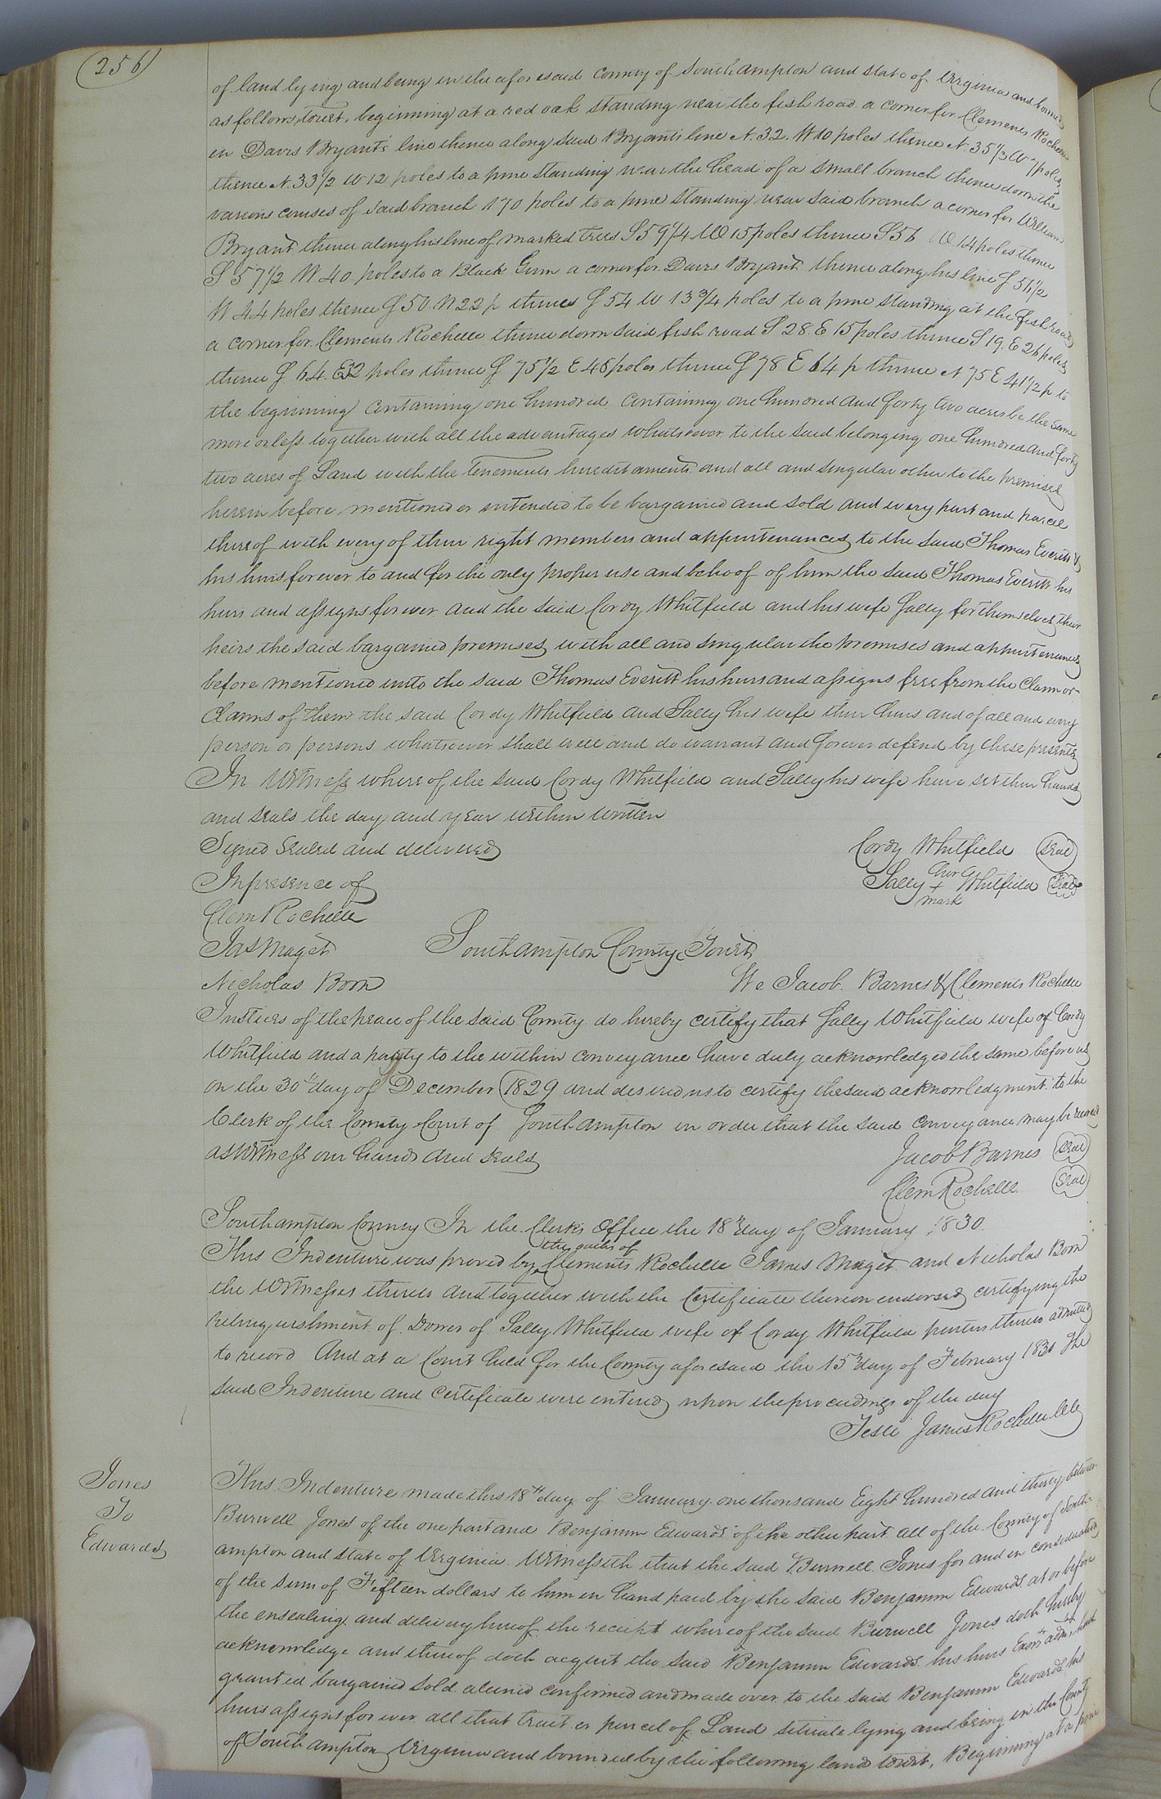 256
of land lying and being in the aforesaid county of Southampton and state of Virginia and bound
as follows, towit, beginning at a red oak standing near the fish road a corner for Clements Rochelle
in Davis Bryants line thence along said Bryants line N. 32. W 10 poles thence N 35 1/2 W poles
thence N. 33 1/2 W 12 poles to a pine standing near the head of a small branch thence down the
various courses of said branch 170 poles to a pine standing near said branch a corner for William
Bryant thence along his line of marked trees S 59 1/4 W 15 poles thence S 56 W 14 poles thence
S 57 1/2 W 40 poles to a Black Gum a corner for Davis Bryant thence along his line S 51 1/2
W 44 poles thence S 50 W 22 p thence S 54 W 13 3/4 poles to a pine standing at the fish road
a corner for Clements Rochelle thence down said fish road S 28. E 15 poles thence S 19. E 26 poles
thence S 64. E 32 poles thence S 75 1/2 E 46 poles thence S 78 E 64 p thence N 75 E 41 1/2 p to
the beginning containing one hundred containing one hundred and forty two acres be the same
more or less together with all the advantages whatsoever to the said belonging one hundred and forty
two acres of Land with the tenements hereditaments and all and singular other to the premises
herein before mentioned or intended to be bargained and sold and every part and parcel
thereof with every of their right members and appurtenances to the said Thomas Everitt &
his heirs forever to and for the only proper use and behoof of him the said Thomas Everitt his
heirs and assigns forever and the said Cordy Whitfield and his wife Sally for themselves their
heirs the said bargained premises with all and singular the premises and appurtenances
before mentioned unto the said Thomas Everitt his heirs and assigns free from the claim or
Claims of them the said Cordy Whitfield and Sally his wife their heirs and of all and every
person or persons whatsoever shall well and do warrant and forever defend by these presents
In Witness whereof the said Cordy Whitfield and Sally his wife have set their hands
and seals the day and year within written
Signed Sealed and delivered Cordy Whitfield Seal
In presence of Sally her + mark Whitfield Seal
Clem Rochelle
Jas Maget Southampton County Towit
Nicholas Boon We Jacob Barnes & Clements Rochelle
Justices of the peace of the said County do hereby certify that Sally Whitfield wife of Cordy
Whitfield and a party to the within conveyance have duly acknowledged the same before us
on the 30th day of December 1829 and desired us to certify the said acknowledgment to the
Clerk of the County Court of Southampton in order that the said conveyance may be recorded
as Witness our hands and seals Jacob Barnes Seal
Clem Rochelle Seal
Southampton County In the Clerks Office the 18th day of January 1830
This Indenture was proved by the oaths of Clements Rochelle James Maget and Nicholas Boon
the Witnesses thereto and together with the Certificate thereon endorsed certifying the
relinquishment of Dower of Sally Whitfield wife of Cordy Whitfield parties thereto admitted
to record And at a Court held for the County aforesaid the 15th day of February 1830 The
said Indenture and certificate were entered upon the proceedings of the day
Teste James Rochelle Clk
Jones
To
Edwards
This Indenture made this 18th day of January one thousand Eight hundred and thirty between
Burwell Jones of the one part and Benjamin Edwards of the other part all of the County of South
ampton and state of Virginia Witnesseth that the said Burwell Jones for and in consideration
of the sum of Fifteen dollars to him in hand paid by the said Benjamin Edwards at or before
the ensealing and delivery hereof the receipt whereof the said Burwell Jones doth hereby
acknowledge and thereof doth acquit the said Benjamin Edwards his heirs Exors adms hath
granted bargained sold aliened confirmed and made over to the said Benjamin Edwards his
heirs assigns forever all that tract or parcel of Land situate lying and being in the County
of Southampton Virginia and bounded by the following land towit, Beginning at a pine